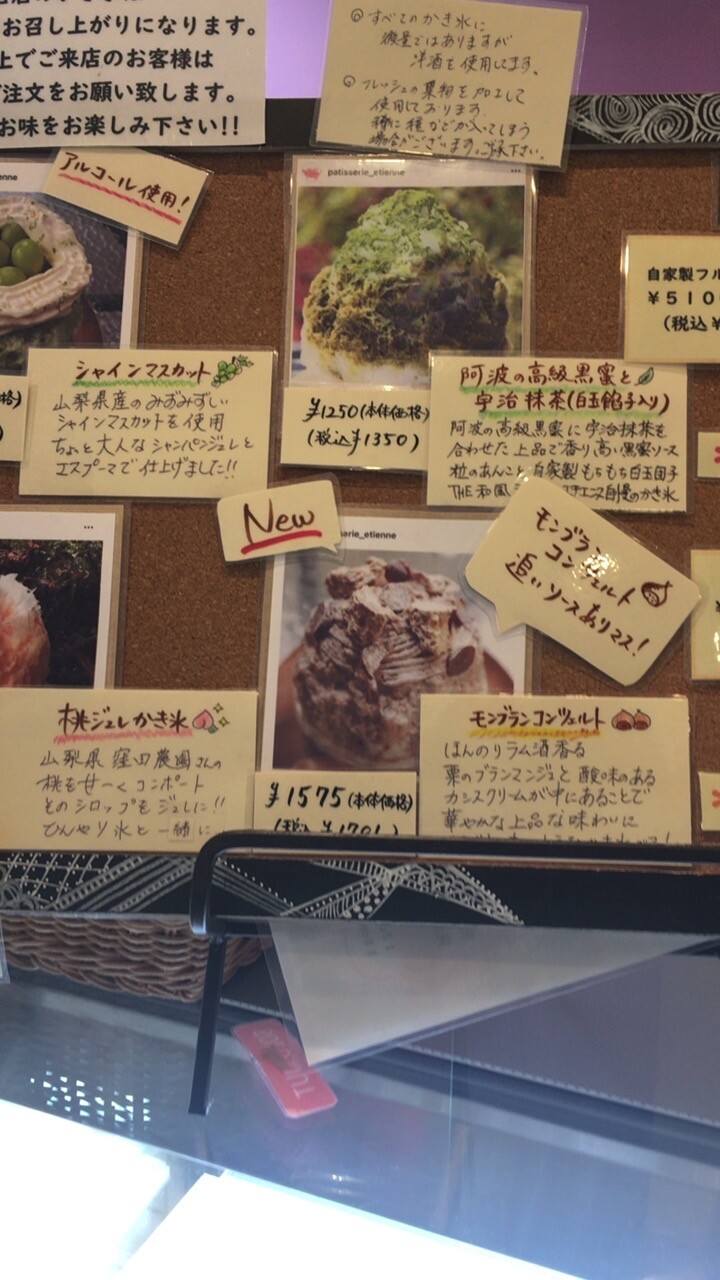 お召し上がりになります。
上でご来店のお客様は
ご注文をお願い致します。
お味をお楽しみ下さい!!
◎ すべてのかき氷に
微量ではありますが
洋酒を使用してます。
◎ フレッシュの果物を加工して
使用しております。
稀に種などが入ってしまう
場合がございます。ご了承下さい。
アルコール使用!
patisserie_etienne
シャインマスカット
山梨県産のみずみずしい
シャインマスカットを使用
ちょと大人なシャンパンジュレと
エスプーマで仕上げました!!
¥1250(本体価格)
(税込¥1350)
阿波の高級黒蜜と
宇治抹茶(白玉餡子入り)
阿波の高級黒蜜に宇治抹茶を
合わせた上品で香り高い黒蜜ソース
粒のあんこと自家製もちもち白玉団子
THE和風 自慢のかき氷
自家製フル
¥510
(税込¥
New
etienne
モンブラン
コンツェルト
追いソースあります!
桃ジュレかき氷
山梨県 窪田農園さんの
桃を甘ーくコンポート
そのシロップをジュレに!!
ひんやり氷と一緒に
¥1575(本体価格)
(税込¥1701)
モンブランコンツェルト
ほんのりラム酒香る
栗のブランマンジェと酸味のある
カシスクリームが中にあることで
華やかな上品な味わいに